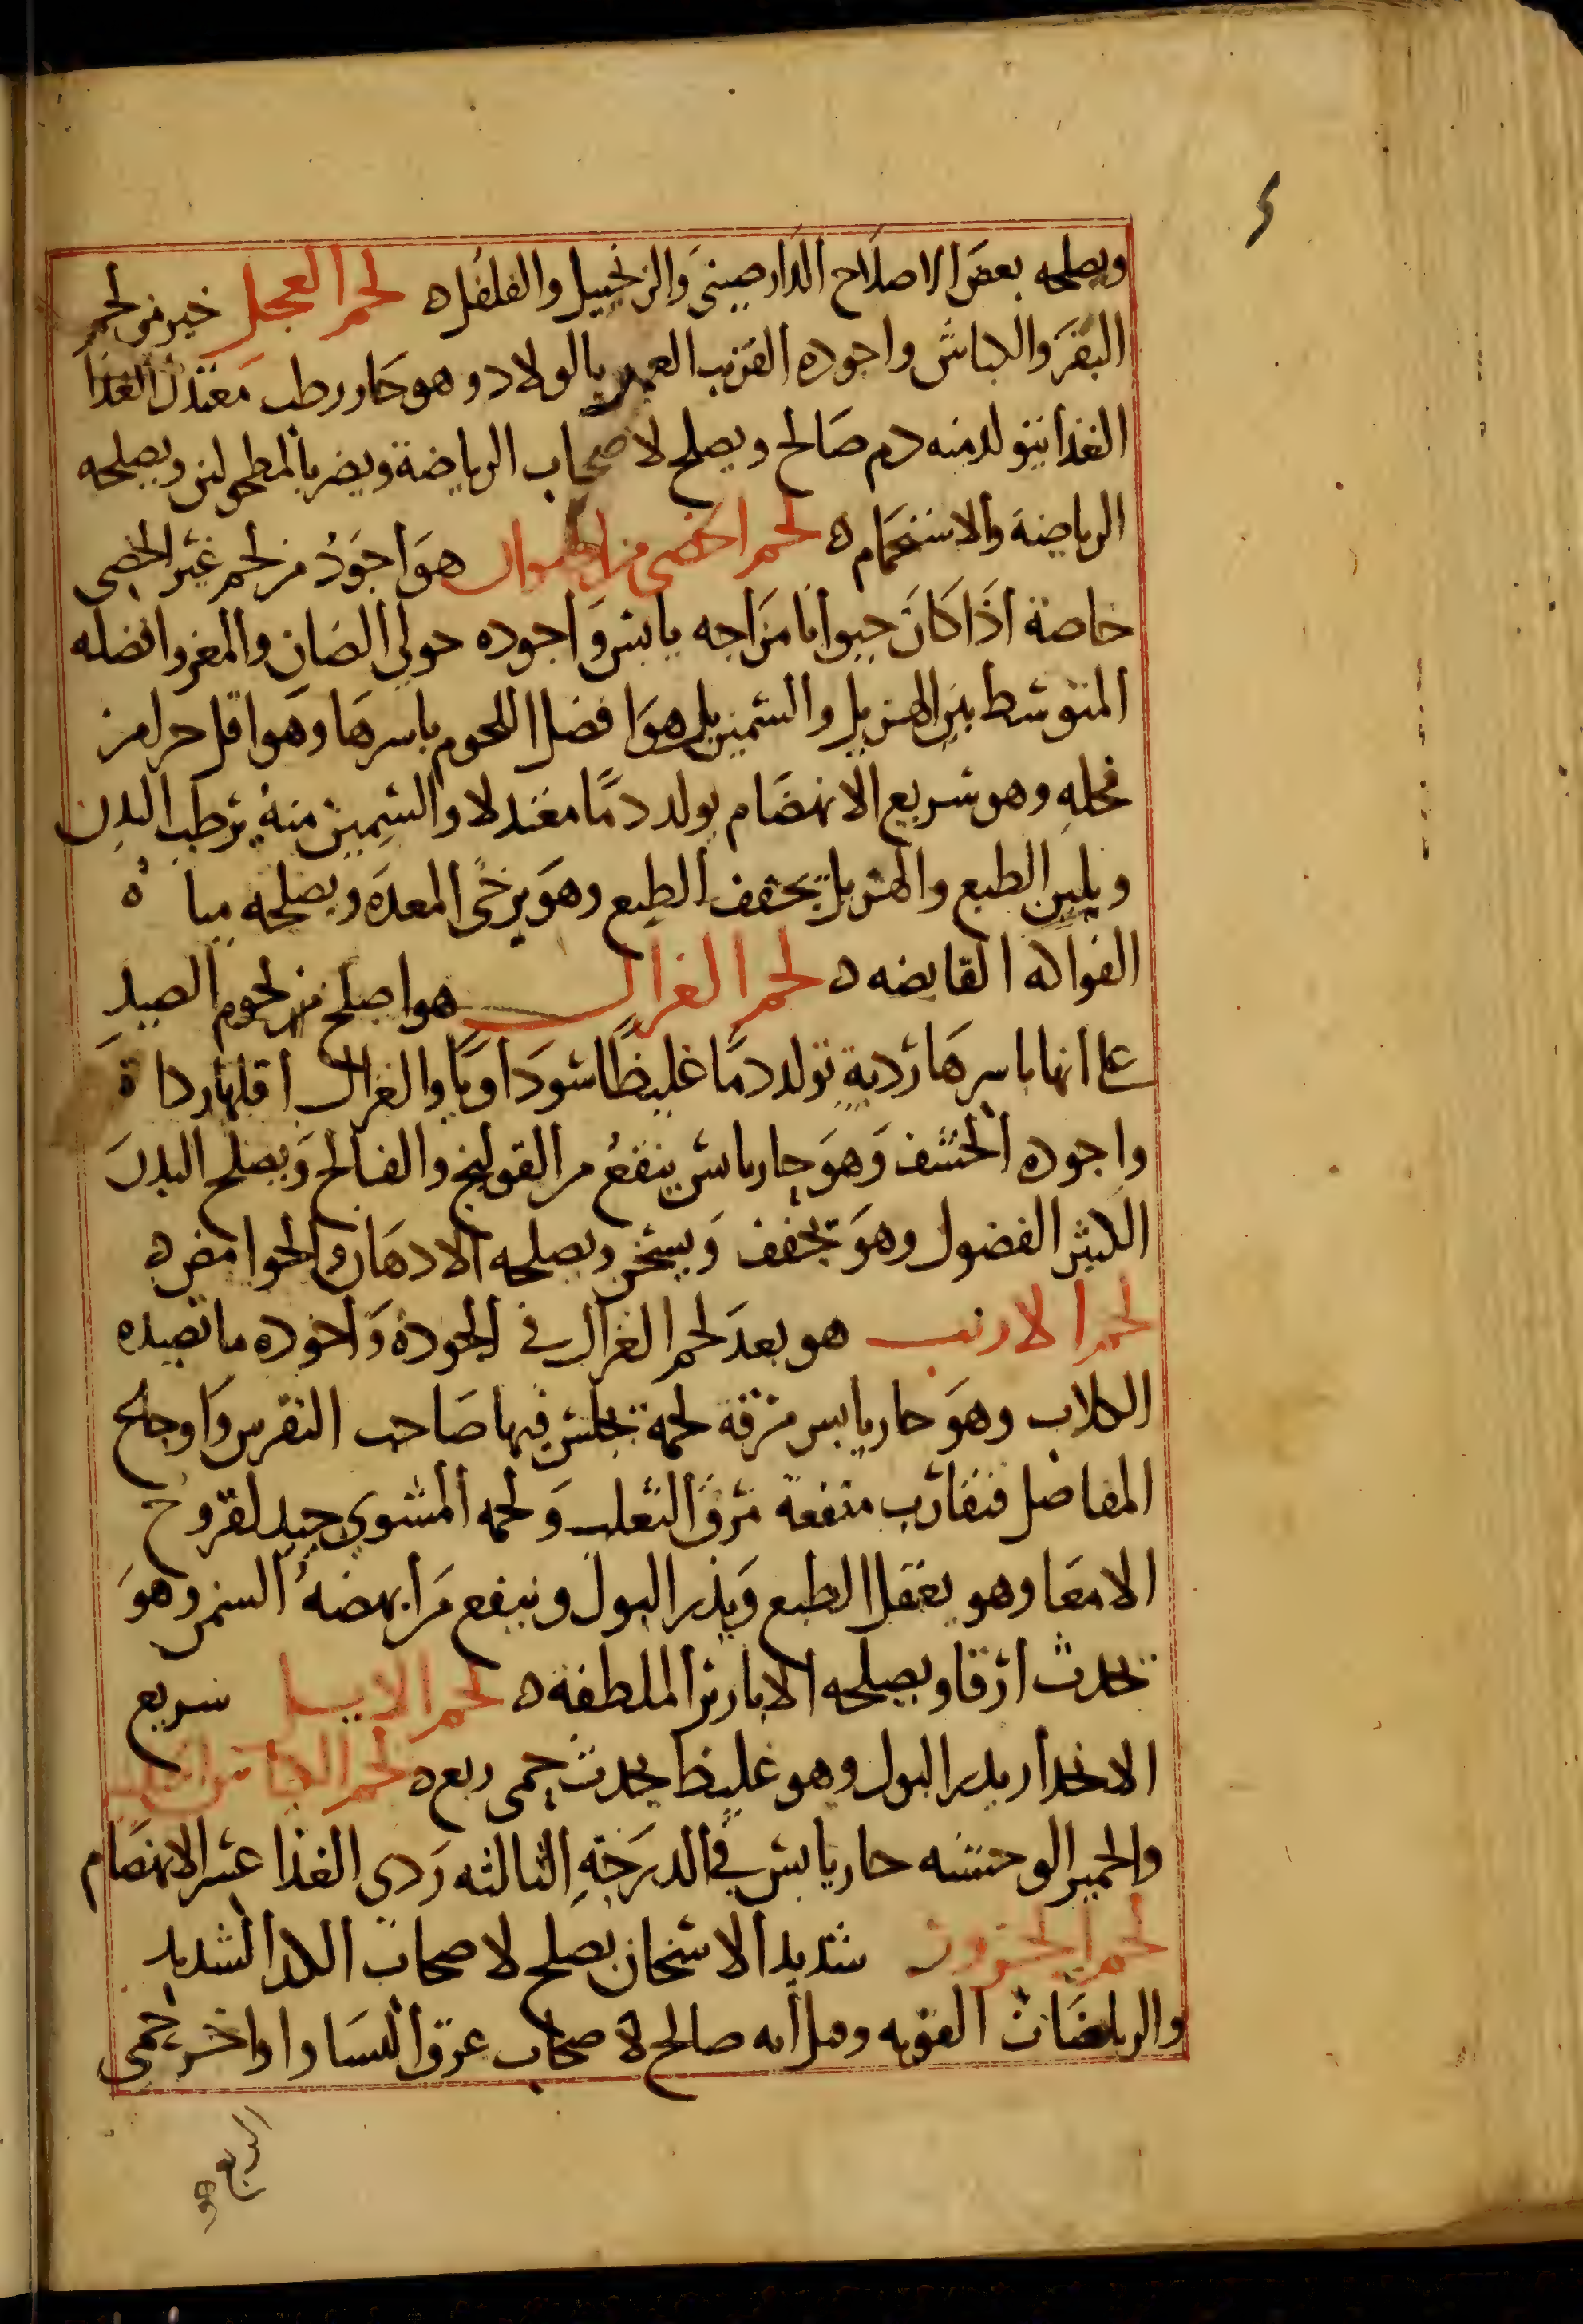 ويصلحه بعض الاصلاح الدارصيني والزنجبيل والفلفل ه لحم العجل خير من لحم
البقر والكباش واجوده القريب العهد بالولاد وهو حار رطب معتدل الغذا
الغذا يتولد منه دم صالح ويصلح لاصحاب الرياضة ويضر بالمطحولين ويصلحه
الرياضة والاستحمام ه لحم الخصي من الحيوان هو اجود من لحم غير الخصي
خاصة اذا كان حيوانا مزاجه يابس واجوده حولي الضان والمعز وافضله
المتوسط بين الهزيل والسمين بل هو افضل اللحوم باسرها وهو اقل حرا من
فحله وهو سريع الانهضام يولد دما معتدلا والسمين منه يرطب البدن
ويلين الطبع والهزيل يجفف الطبع وهو يرخي المعدة ويصلحه مياه
الفواكه القابضه ه لحم الغزال هو اصلح من لحوم الصيد
على انها باسرها ردية تولد دما غليظا سوداويا والغزال اقلها رداة
واجوده الخشف وهو حار يابس ينفع من القولنج والفالج ويصلح البدن
الكثير الفضول وهو يجفف ويسخن ويصلحه الادهان والحوامض ه
لحم الارنب هو بعد لحم الغزال في الجودة واجوده ما تصيده
الكلاب وهو حار يابس مرقة لحمه يجلس فيها صاحب النقرس واوجاع
المفاصل فتقارب منفعة مرق الثعلب ولحمه المشوي جيد لقروح
الامعا وهو يعقل الطبع ويدر البول وينفع من ابهضه السمن وهو
يحدث ارقا ويصلحه الابازير الملطفه ه لحم الايل سريع
الانحدار يدر البول وهو غليظ يحدث حمى ربع ه لحم
والحمير الوحشيه حار يابس في الدرجة الثالثه ردي الغذا عسر الانهضام
لحم الجزور شديد الاسخان يصلح لاصحاب الكد الشديد
والرياضات القويه وقيل انه صالح لاصحاب عرق النسا واواخر حمى
الربع وهو